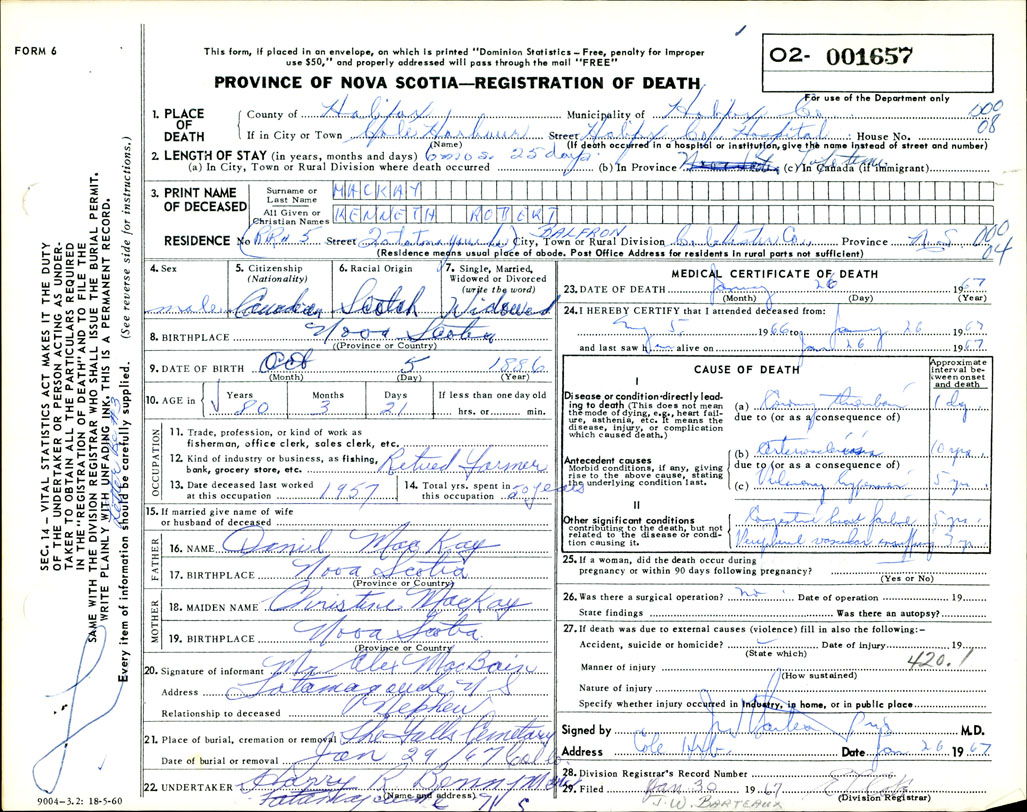 FORM 6
This form, if placed in an envelope, on which is printed "Dominion Statistics – Free, penalty for improper
use $50," and properly addressed will pass through the mail "FREE"
PROVINCE OF NOVA SCOTIA—REGISTRATION OF DEATH
02- 001657
For use of the Department only
1. PLACE OF DEATH
County of Halifax Municipality of Halifax Co. 000
If in City or Town Cole Harbour Street Halifax Co. Hospital House No. 08
(Name) (If death occurred in a hospital or institution, give the name instead of street and number)
2. LENGTH OF STAY (in years, months and days) 6 mos. 25 days
(a) In City, Town or Rural Division where death occurred (b) In Province Nova Scotia Lifetime (c) In Canada (if immigrant)
3. PRINT NAME OF DECEASED
Surname or Last Name MACKAY
All Given or Christian Names KENNETH ROBERT
BALFRON
RESIDENCE No RR# 5 Street Tatamagouche City, Town or Rural Division Colchester Co. Province N.S 000 04
(Residence means usual place of abode. Post Office Address for residents in rural parts not sufficient)
4. Sex male
5. Citizenship (Nationality) Canadian
6. Racial Origin Scotch
7. Single, Married, Widowed or Divorced (write the word) Widowed
8. BIRTHPLACE Nova Scotia
(Province or Country)
9. DATE OF BIRTH Oct 5 1886
(Month) (Day) (Year)
10. AGE in Years 80 Months 3 Days 21 If less than one day old hrs. or min.
OCCUPATION
11. Trade, profession, or kind of work as fisherman, office clerk, sales clerk, etc.
12. Kind of industry or business, as fishing, bank, grocery store, etc. Retired Farmer
13. Date deceased last worked at this occupation 1957
14. Total yrs. spent in this occupation 50 years
15. If married give name of wife or husband of deceased
FATHER
16. NAME Daniel MacKay
17. BIRTHPLACE Nova Scotia
(Province or Country)
MOTHER
18. MAIDEN NAME Christine MacKay
19. BIRTHPLACE Nova Scotia
(Province or Country)
20. Signature of informant Mr Alex MacBain
Address Tatamagouche N S
Relationship to deceased Nephew
21. Place of burial, cremation or removal The Falls Cemetery
Date of burial or removal Jan 29/67 Col Co
22. UNDERTAKER Harry R Benny
(Name and address)
Tatamagouche N S
9004–3.2: 18-5-60
MEDICAL CERTIFICATE OF DEATH
23. DATE OF DEATH January 26 1967
(Month) (Day) (Year)
24. I HEREBY CERTIFY that I attended deceased from:
July 5 1966 to January 26 1967
and last saw him alive on Jan 26 1967.
CAUSE OF DEATH
Approximate interval between onset and death
I
Disease or condition directly leading to death (This does not mean the mode of dying, e.g., heart failure, asthenia, etc. It means the disease, injury, or complication which caused death.)
(a) Coronary thrombosis 1 dy.
due to (or as a consequence of)
Antecedent causes
Morbid conditions, if any, giving rise to the above cause, stating the underlying condition last.
(b) Arteriosclerosis 10 yrs.
due to (or as a consequence of)
(c) Pulmonary emphysema 5 yrs.
II
Other significant conditions contributing to the death, but not related to the disease or condition causing it.
Congestive heart failure 5 yrs.
Peripheral vascular insufficiency 3 yr.
25. If a woman, did the death occur during pregnancy or within 90 days following pregnancy?
(Yes or No)
26. Was there a surgical operation? no Date of operation 19
State findings Was there an autopsy?
27. If death was due to external causes (violence) fill in also the following:–
Accident, suicide or homicide? Date of injury 19
(State which)
420.1
Manner of injury
(How sustained)
Nature of injury
Specify whether injury occurred in Industry, in home, or in public place
Signed by M.D.
Address Cole Hbr. Date Jan 26 1967
28. Division Registrar's Record Number
29. Filed Jan 30 1967
(Division Registrar)
J. W. BARTEAUX
SEC. 14 – VITAL STATISTICS ACT MAKES IT THE DUTY
OF THE UNDERTAKER OR PERSON ACTING AS UNDER-
TAKER TO OBTAIN ALL THE PARTICULARS REQUIRED
IN THE "REGISTRATION OF DEATH" AND TO FILE THE
SAME WITH THE DIVISION REGISTRAR WHO SHALL ISSUE THE BURIAL PERMIT.
WRITE PLAINLY WITH UNFADING INK. THIS IS A PERMANENT RECORD.
Every item of information should be carefully supplied. (See reverse side for instructions.)